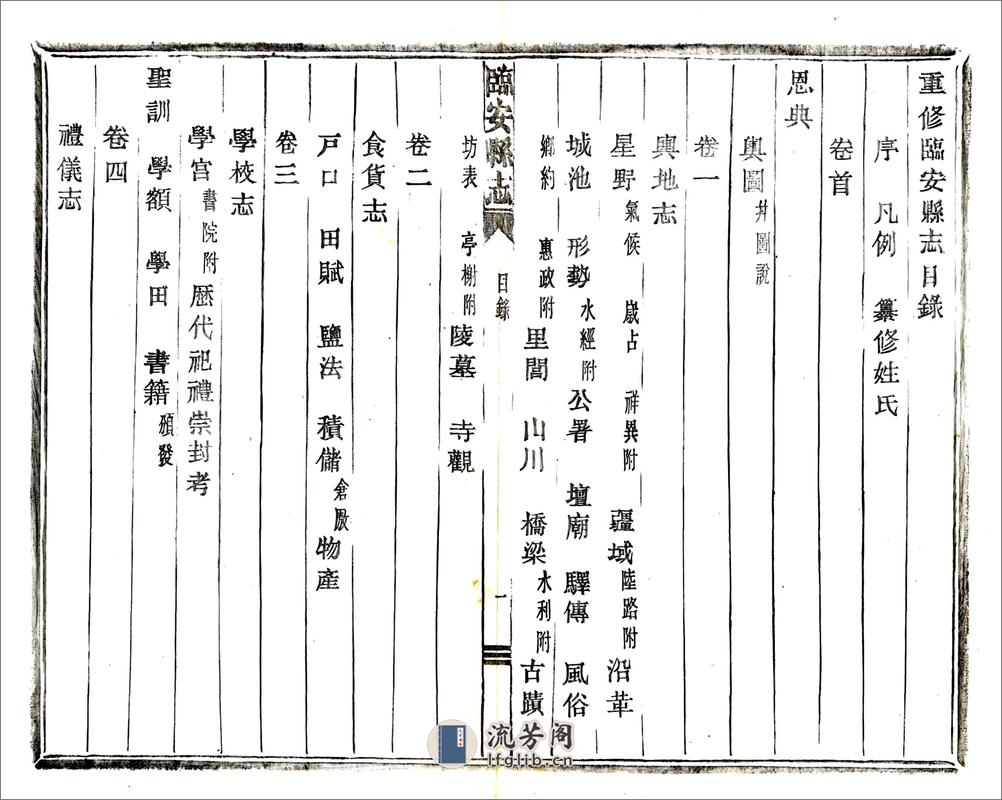 重修臨安縣志目錄
序 凡例 纂修姓氏
卷首
恩典
輿圖 幷圖說
卷一
輿地志
星野 氣候 歲占 祥異附 疆域 陸路附 沿革
城池 形勢 水經附 公署 壇廟 驛傳 風俗
鄉約 惠政附 里閭 山川 橋梁 水利附 古蹟
臨安縣志 目錄 一
坊表 亭榭附 陵墓 寺觀
卷二
食貨志
戶口 田賦 鹽法 積儲 倉厫 物產
卷三
學校志
學宮 書院附 歷代祀禮崇封考
聖訓 學額 學田 書籍 頒發
卷四
禮儀志
流芳阁
lfglib.cn